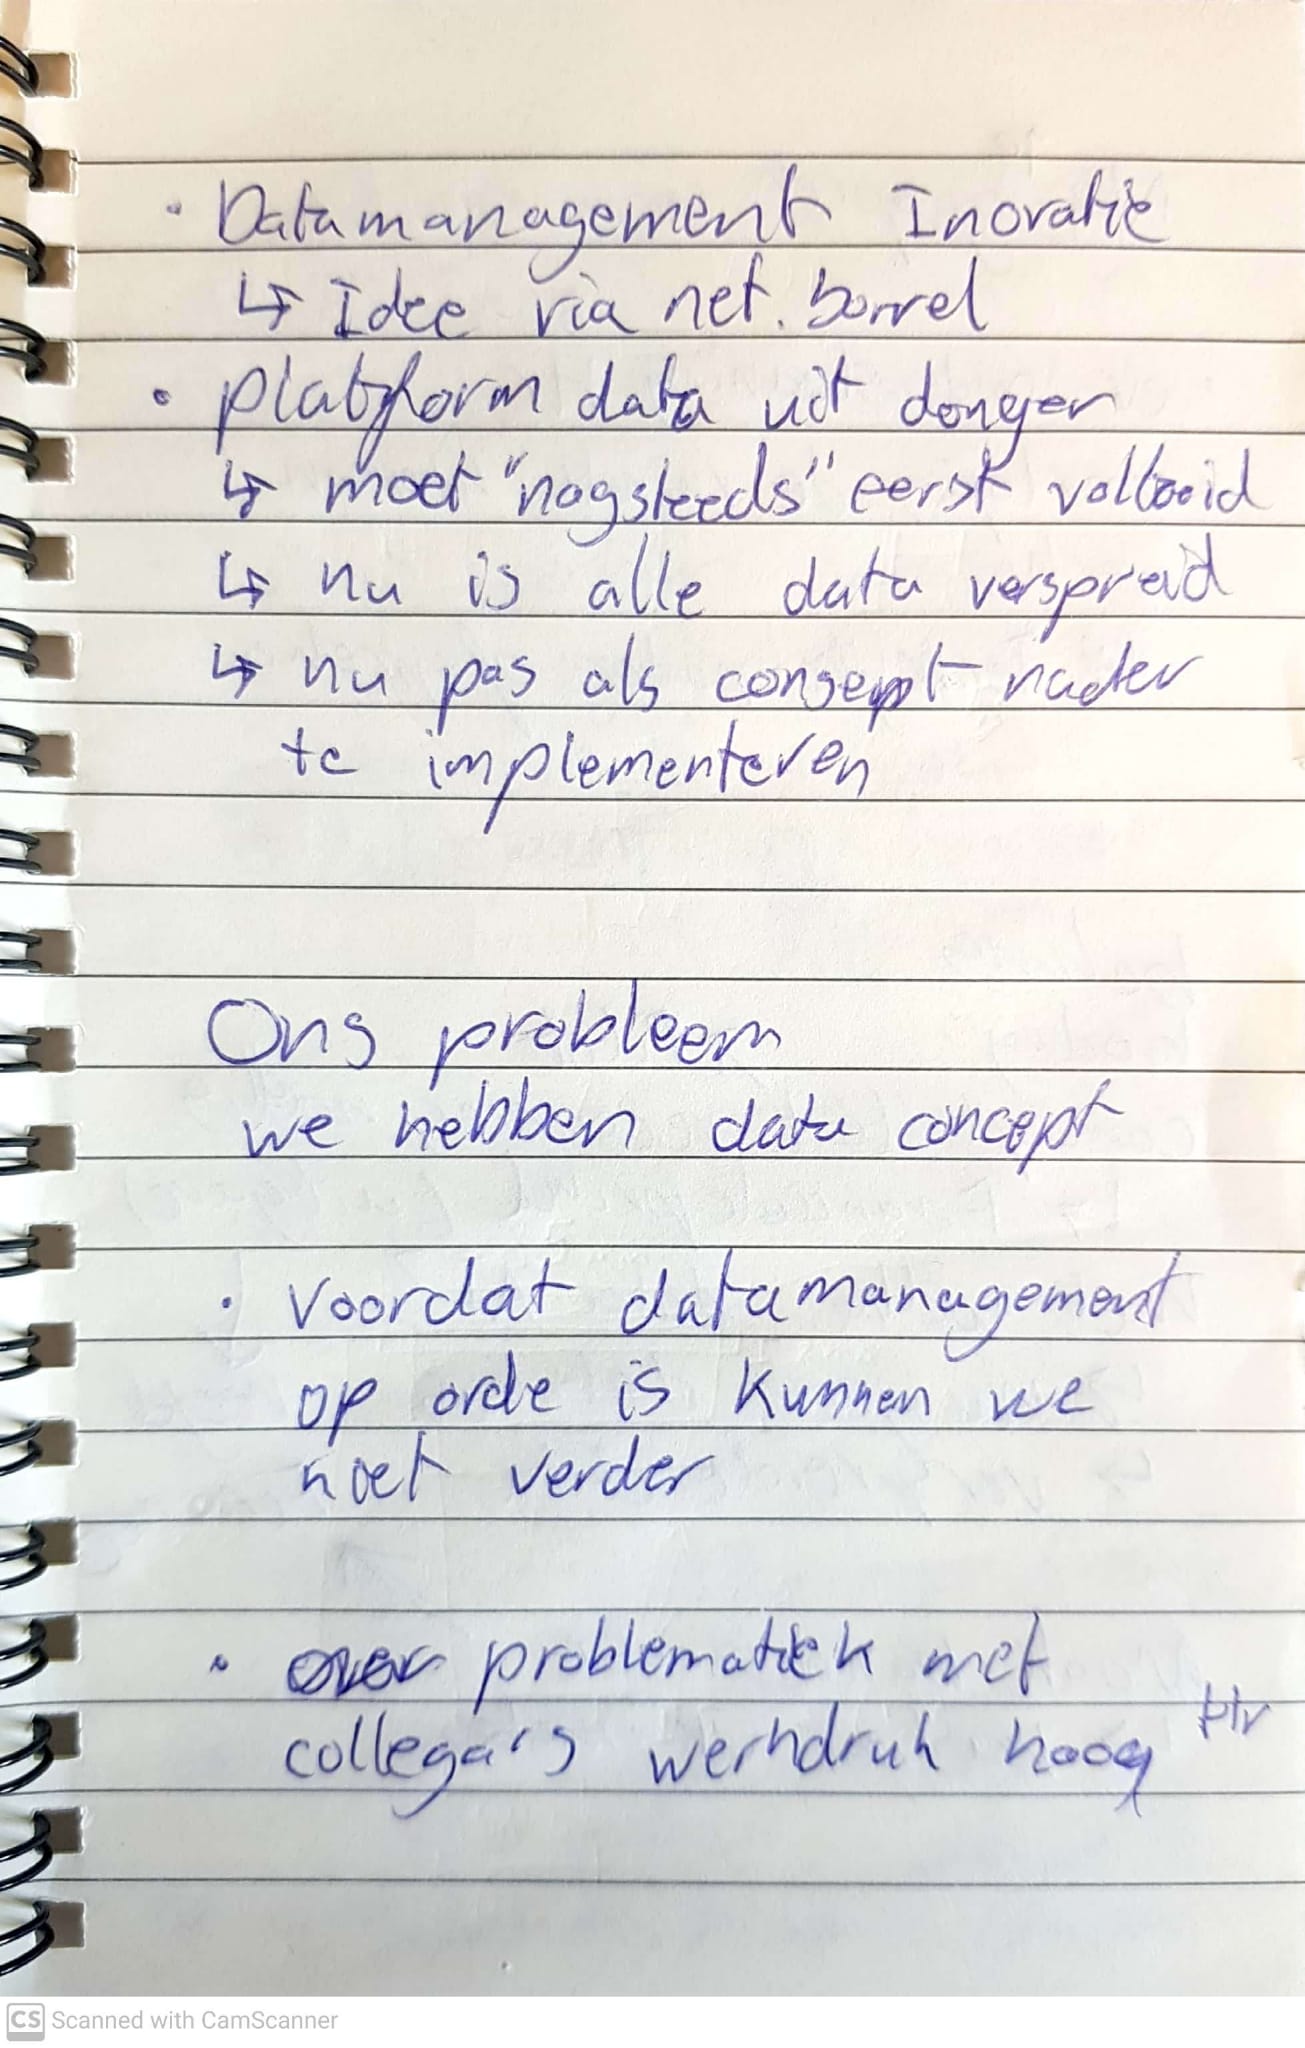 · Datamanagement Inovatie
↳ Idee via net. borrel
· platform data uit donger
↳ moet "nogsteeds" eerst voltooid
↳ nu is alle data verspreid
↳ nu pas als consept nader
te implementeren
Ons probleem
we hebben data concept
· Voordat datamanagement
op orde is kunnen we
niet verder
· over problematiek met
collega's werkdruk hoog
CS Scanned with CamScanner